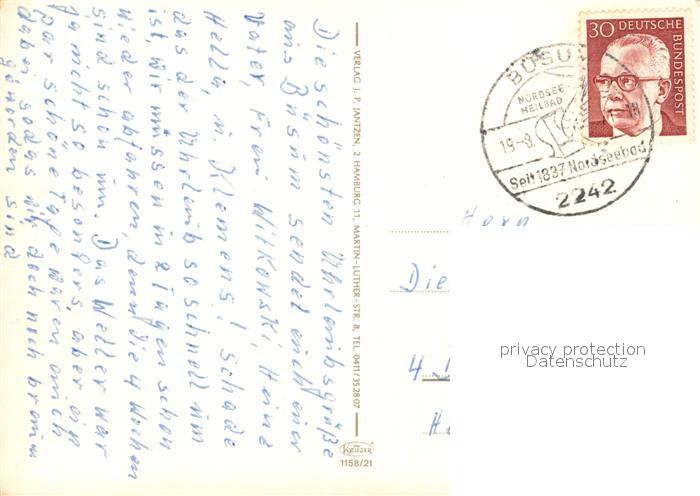 Die schönsten Uhrlaubsgrüße
aus Büsum sendet euch euer
Vater, Frau Witkowski, Heinz
Hella, u. Klemens! Schade
das der Uhrlaub so schnell um
ist, wir müssen in 2 Tagen schon
wieder abfahren, denn die 4 Wochen
sind schon um. Das Wetter war
ja nicht so besonders, aber ein
par schöne Tage waren auch
dabei sodas wir doch noch braun
geworden sind
VERLAG J. P. JANTZEN, 2 HAMBURG 11, MARTIN-LUTHER-STR. 8, TEL. 0411/35 28 07
KRÜGER
1158/21
30 DEUTSCHE
BUNDESPOST
BÜSUM
NORDSEE
HEILBAD
19.-8.
Seit 1837 Nordseebad
2242
Die
4
privacy protection
Datenschutz